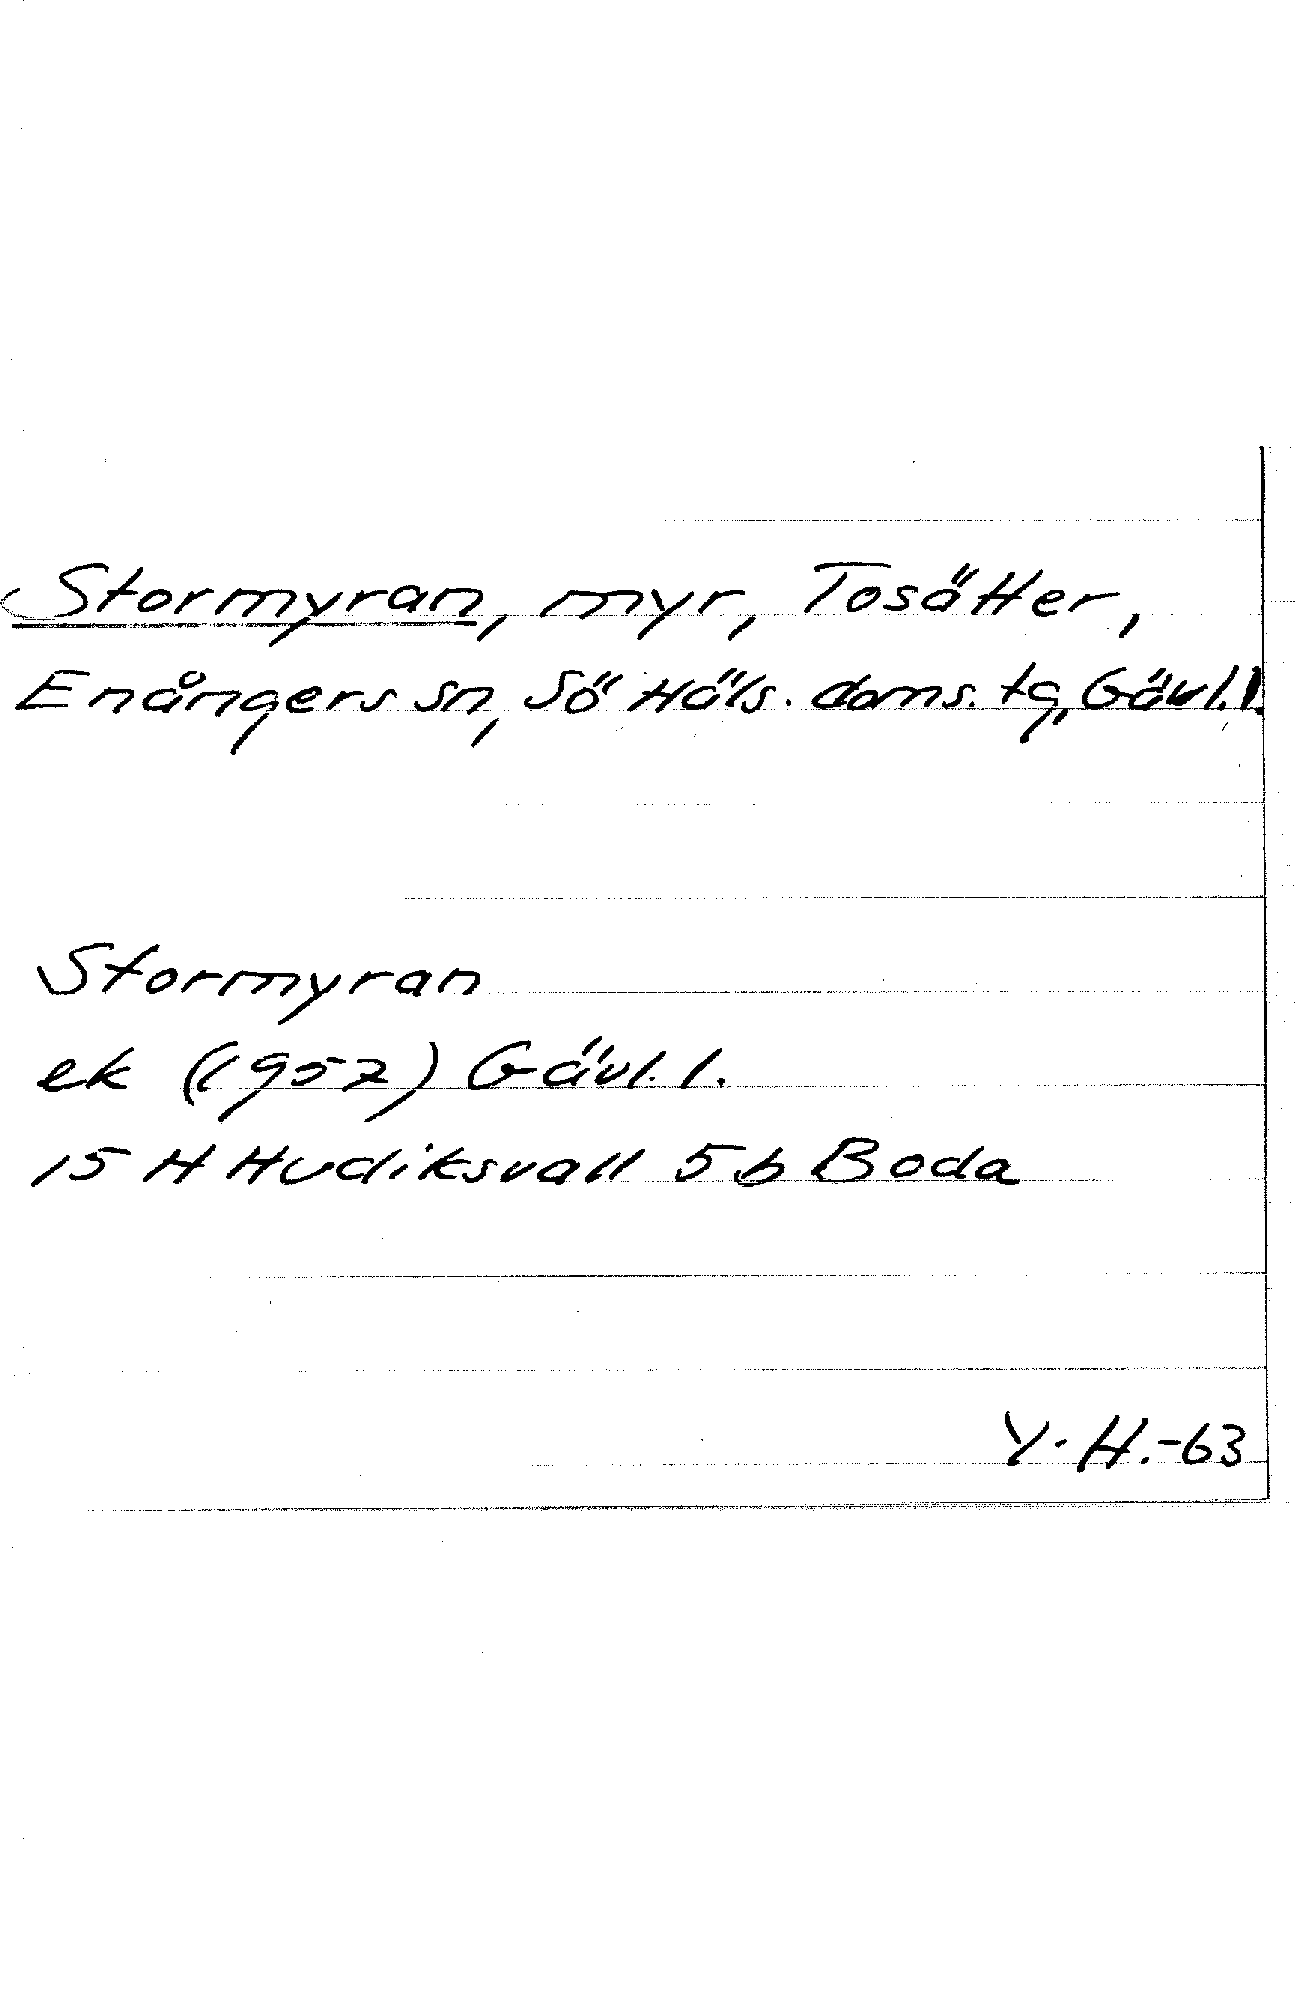 Stormyran, myr, Tosätter,
Enångers sn, Sö Häls. doms. tg, Gävl. l.
Stormyran
ek (1957) Gävl. l.
15 H Hudiksvall 5 b Boda
Y. H. -63